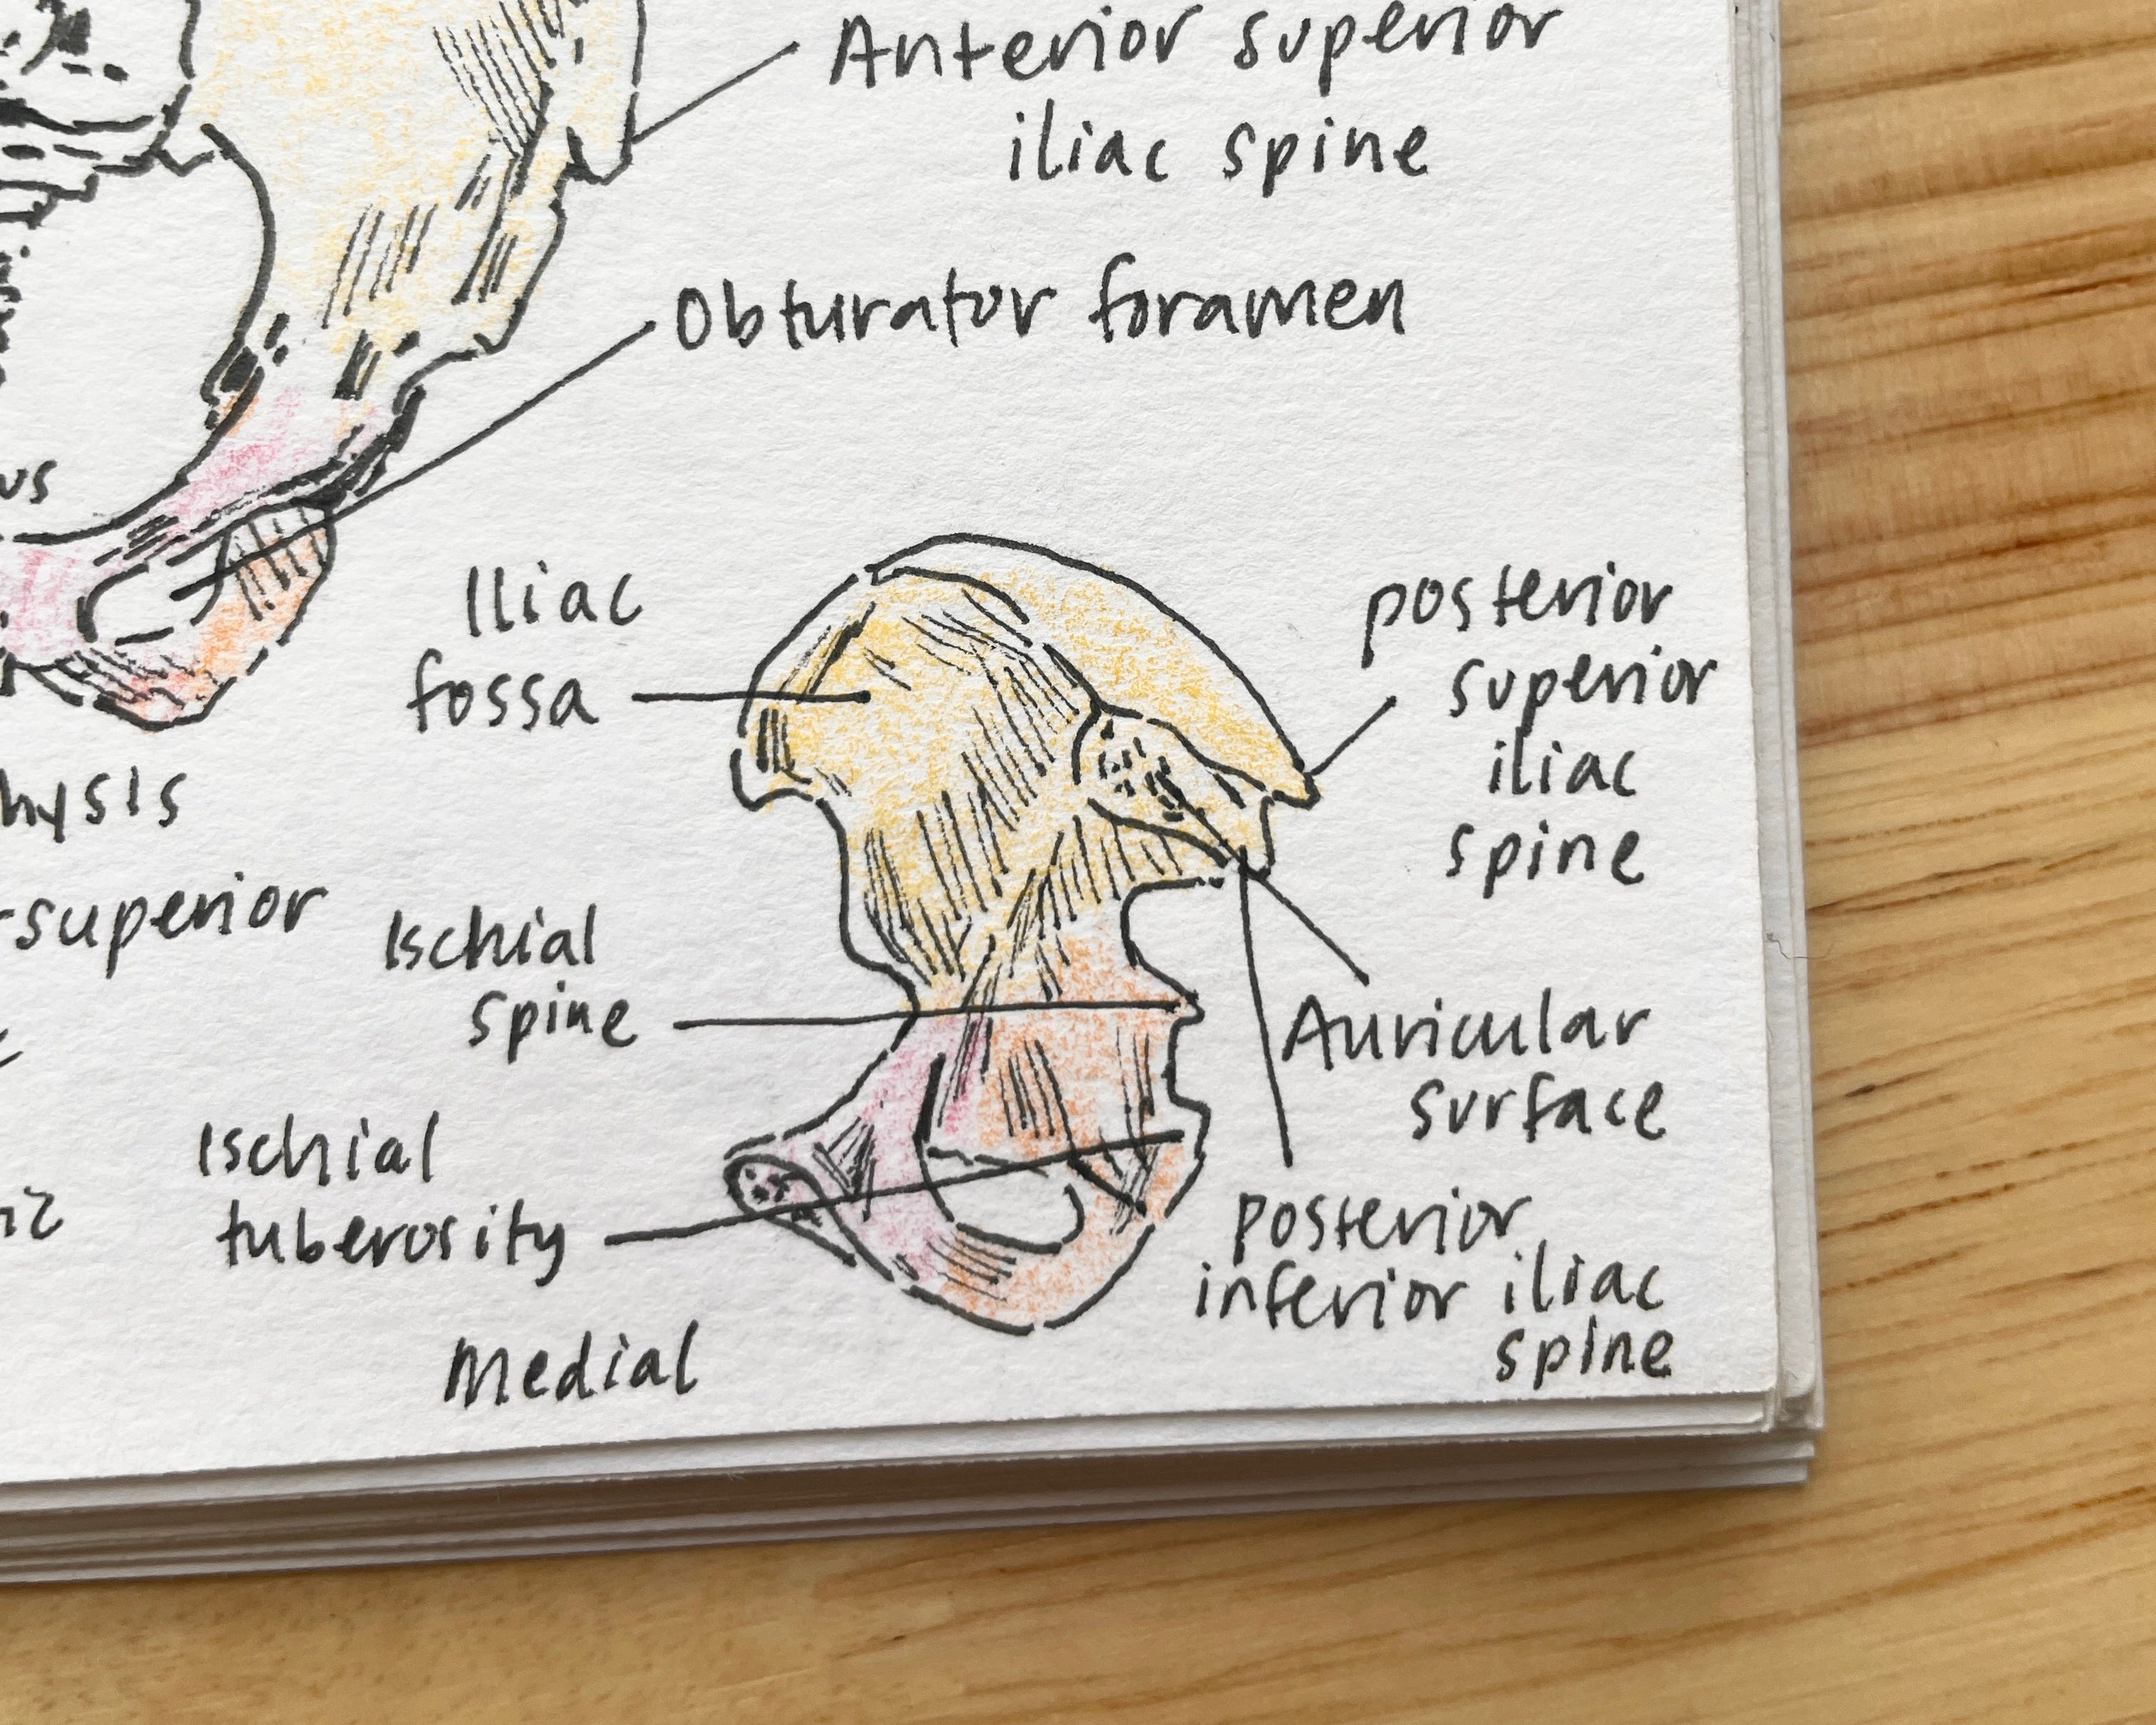 Anterior superior
iliac spine
Obturator foramen
Iliac
fossa
posterior
superior
iliac
spine
hysis
-superior
Ischial
spine
Auricular
surface
Ischial
tuberosity
Posterior
inferior iliac
spine
Medial